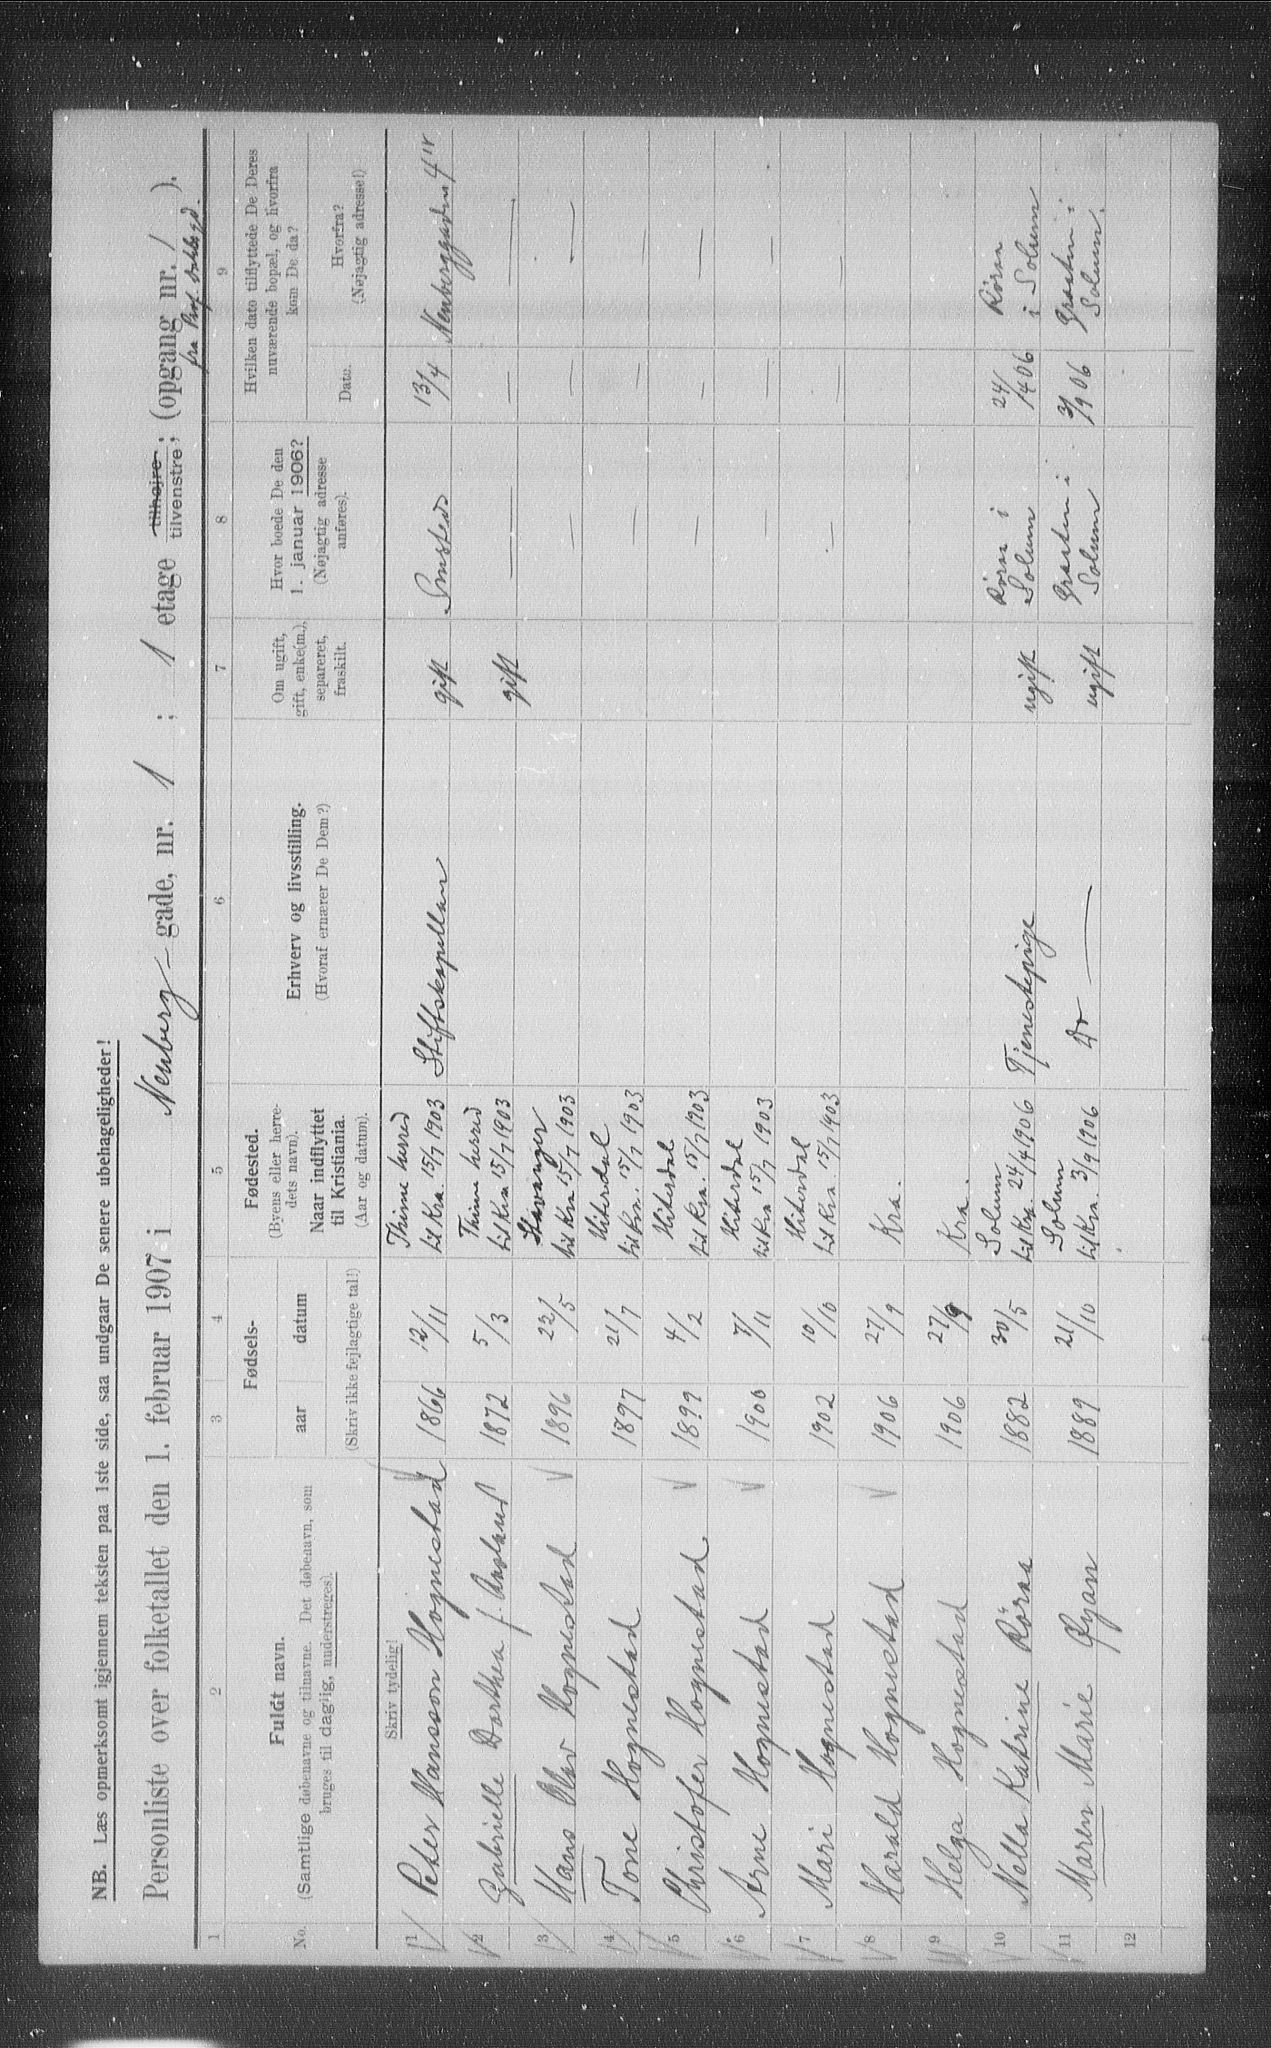 NB. Læs opmerksomt igjennem teksten paa 1ste side, saa undgaar De senere ubehageligheder!
Personliste over folketallet den 1. februar 1907 i Neuberg- gade, nr. 1 ; 1 etage tilhøjre, tilvenstre; (opgang nr. / ).
fra Prof.
1 2 3 4 5 6 7 8 9
No.
Fuldt navn.
(Samtlige døbenavne og tilnavne. Det døbenavn, som
bruges til daglig, understreges).
Fødsels-
aar datum
(Skriv ikke fejlagtige tal!)
Fødested.
(Byens eller herre-
dets navn).
Naar indflyttet
til Kristiania.
(Aar og datum).
Erhverv og livsstilling.
(Hvoraf ernærer De Dem?)
Om ugift,
gift, enke(m.),
separeret,
fraskilt.
Hvor boede De den
1. januar 1906?
(Nøjagtig adresse
anføres).
Hvilken dato tilflyttede De Deres
nuværende bopæl, og hvorfra
kom De da?
Dato.
Hvorfra?
(Nøjagtig adresse!)
Skriv tydelig!
1 Peter Hansson Hognestad 1866 12/11 Thime herred til Kra. 15/7 1903 Stiftskapellan gift 13/4 Neuberggaden 4 IV
2 Gabrielle Dorthea f. Aasland 1872 5/3 Thime herred til Kra 15/7 1903 gift — — —
3 Hans Olav Hognestad 1896 22/5 Stavanger til Kra 15/7 1903 — — —
4 Tone Hognestad 1897 21/7 Hiterdal til Kra. 15/7 1903 — — —
5 Christofer Hognestad 1899 4/2 Hiterdal til Kra. 15/7 1903 — — —
6 Arne Hognestad 1900 7/11 Hiterdal til Kra 15/7 1903 — —
7 Mari Hognestad 1902 10/10 Hiterdal til Kra 15/7 1903 — — —
8 Harald Hognestad 1906 27/9 Kra.
9 Helga Hognestad 1906 27/9 Kra.
10 Nella Katrine Röraa 1882 30/5 Solum til Kra. 24/4 1906 Tjenestepige ugift Röraa i Solum 24/4 06 Röraa i Solum
11 Maren Marie Øyan 1889 21/10 Solum til Kra. 3/9 1906 Do — ugift Graaten i Solum 3/9 06 Graaten i Solum.
12